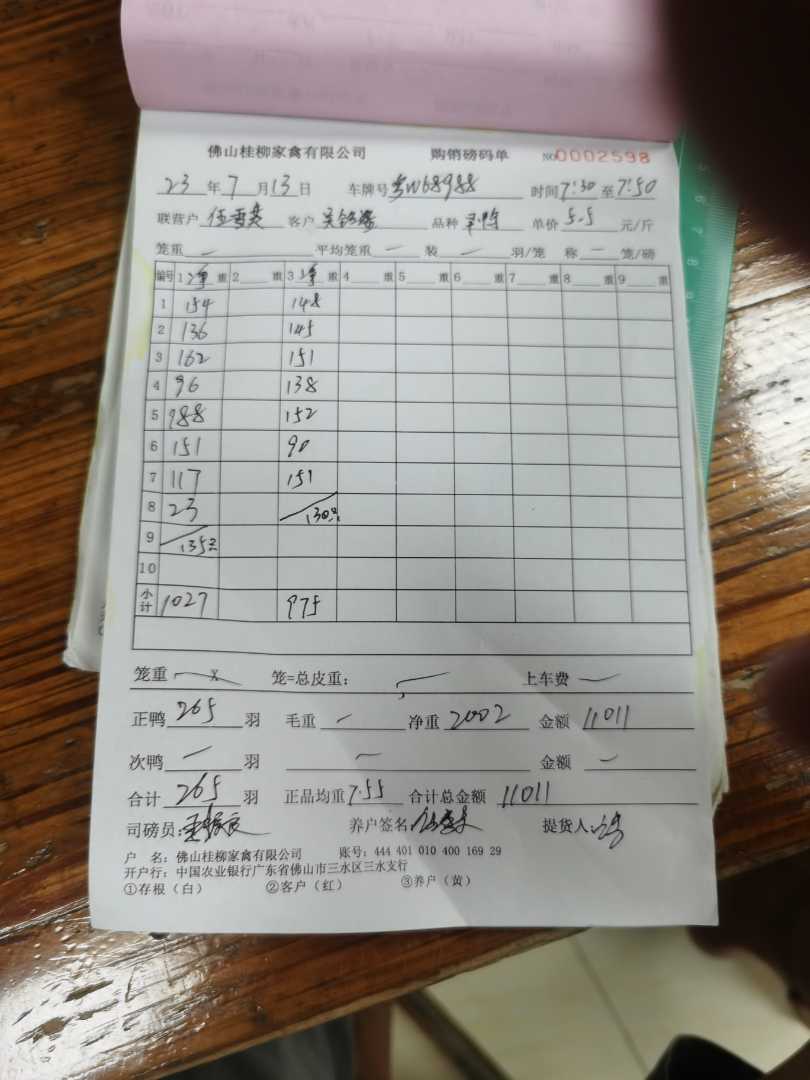 佛山桂柳家禽有限公司 购销磅码单 NO0002598
23年7月13日 车牌号粤W68988 时间7:30至7:50
联营户 客户 品种 单价5.5元/斤
笼重— 平均笼重— 装—羽/笼 称—笼/磅
编号 1净重 2 重 3净重 4 重 5 重 6 重 7 重 8 重 9 重
1 154 148
2 136 145
3 162 151
4 96 138
5 188 152
6 151 90
7 117 151
8 23 130只
9 135只
10
小计 1027 975
笼重— x 笼=总皮重:— 上车费—
正鸭265羽 毛重— 净重2002 金额11011
次鸭—羽 — 金额—
合计265羽 正品均重7.55 合计总金额11011
司磅员: 养户签名: 提货人:
户 名:佛山桂柳家禽有限公司 账号:444 401 010 400 169 29
开户行:中国农业银行广东省佛山市三水区三水支行
①存根(白) ②客户(红) ③养户(黄)